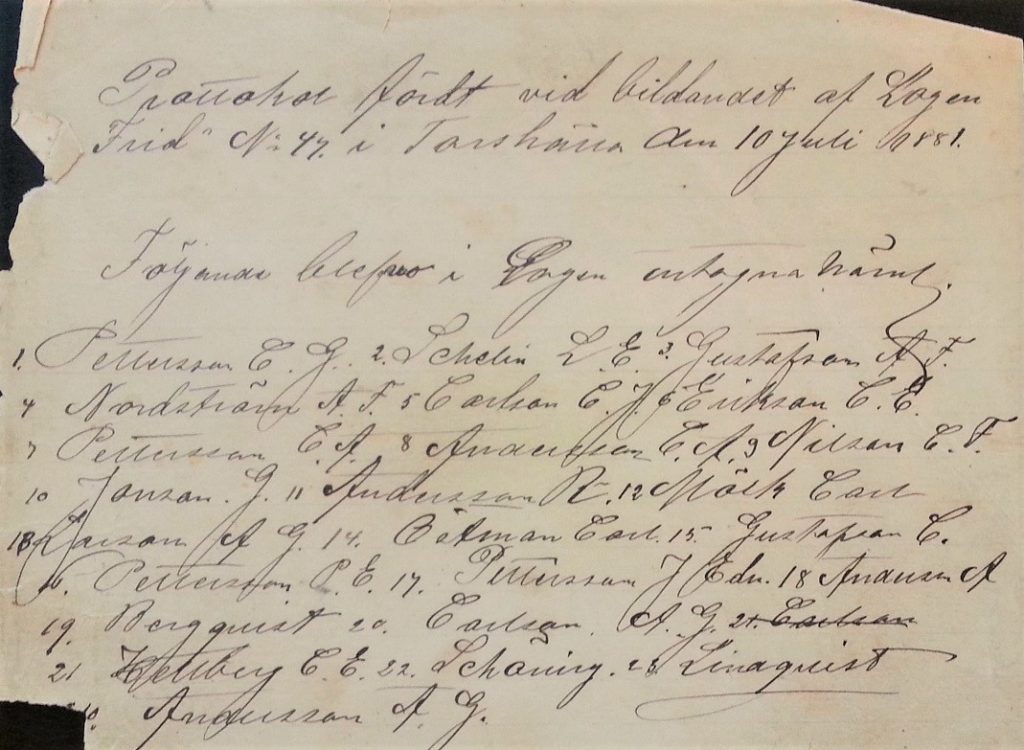 Protokol fördt vid bildandet af Logen
Frid" No 47. i Torshälla den 10 Juli 1881.
Följande blefvo i Logen intagna näml.
1. Pettersson C. G. 2. Schelin L. E. 3. Gustafson A. F.
4 Nordström A. F. 5 Carlson C. J. 6 Erikson C. E.
7 Pettersson C. A. 8 Andersson C. A. 9 Nilson C. F.
10 Jonson. G. 11 Andersson R. 12 Mörk Carl
13 Larson A G. 14. Öٖman Carl. 15 Gustafson C.
16. Pettersson P. E. 17. Pettersson J Edv. 18 Anderson A
19. Bergquist 20. Carlson. A. G. 21. Carlson
21 Hellberg C. E. 22. Schöning. 23 Lindquist
Andersson A. G.